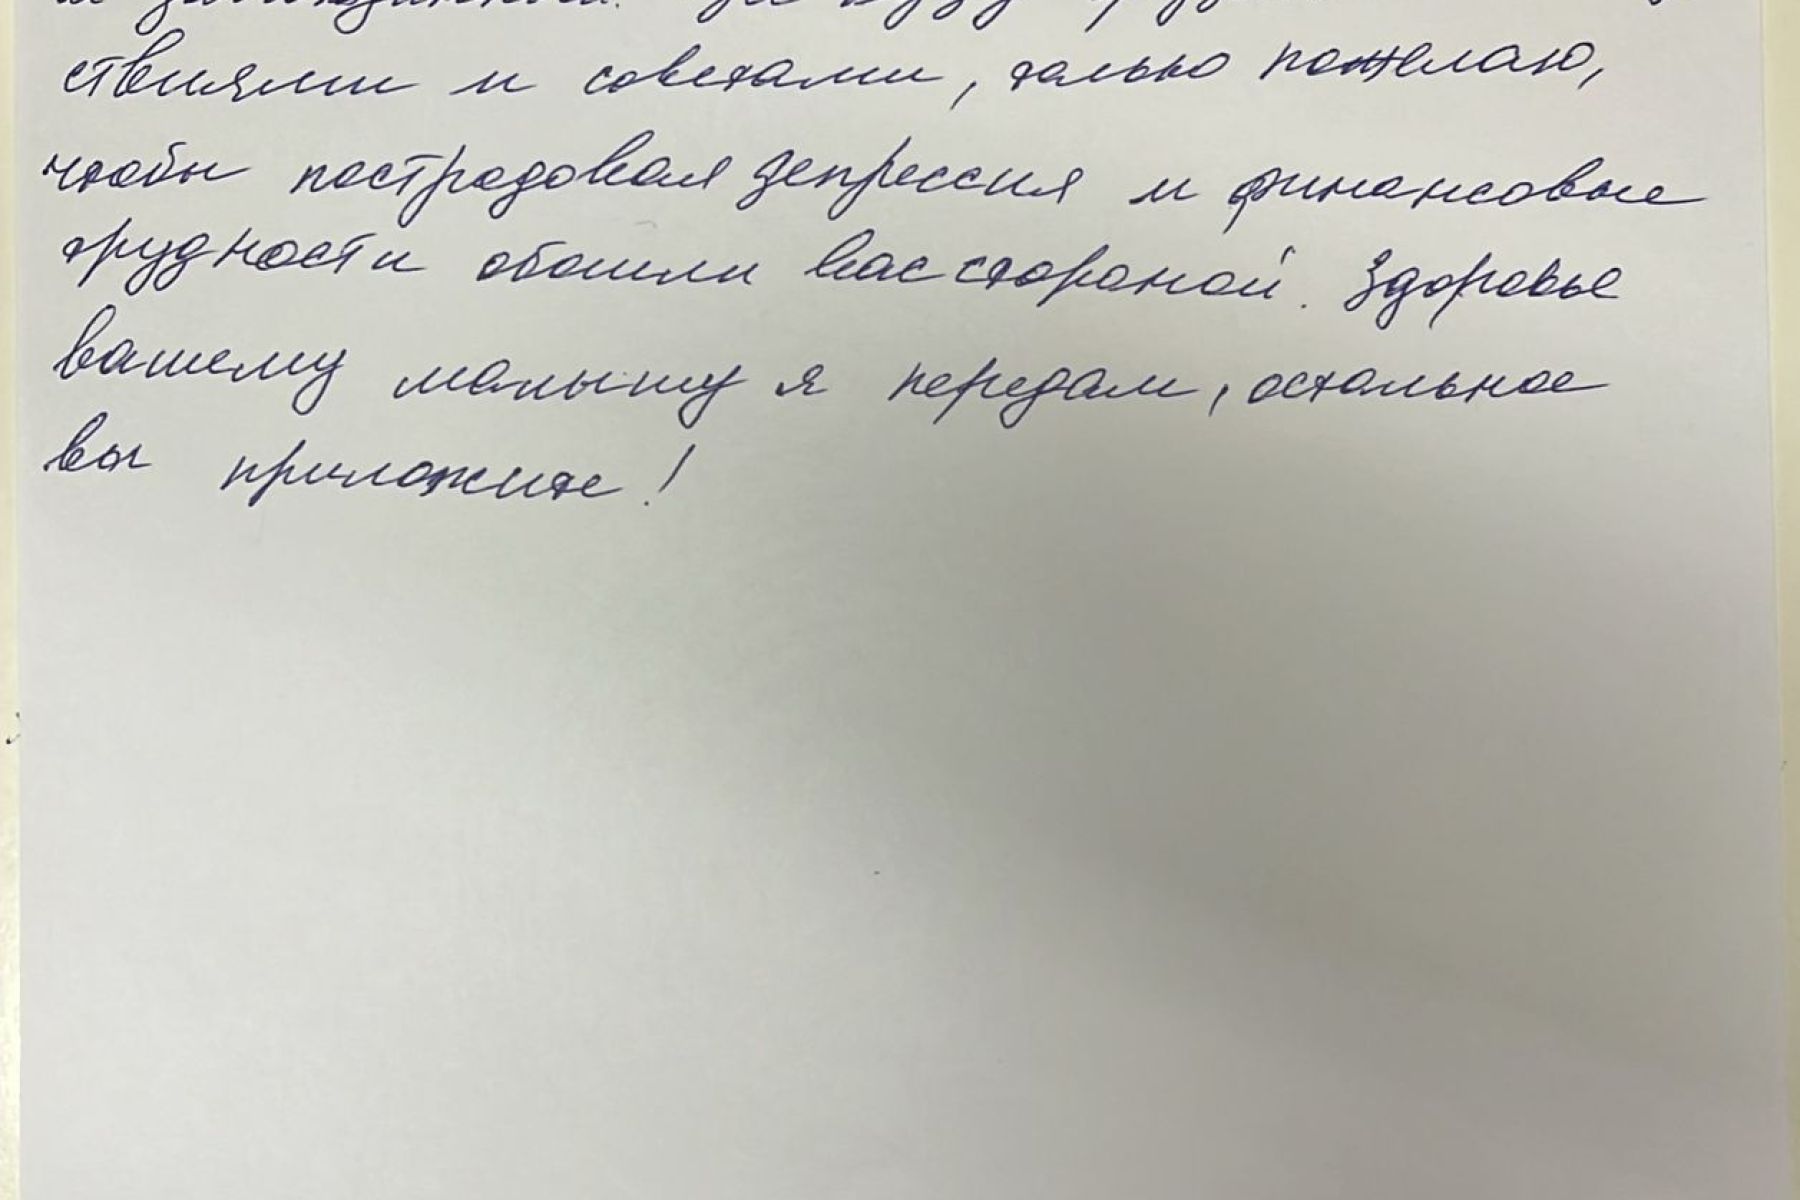 ствиями и советами, только пожелаю,
чтобы постродовая депрессия и финансовые
трудности обошли вас стороной. Здоровье
вашему малышу я передам, остальное
вы приложите!